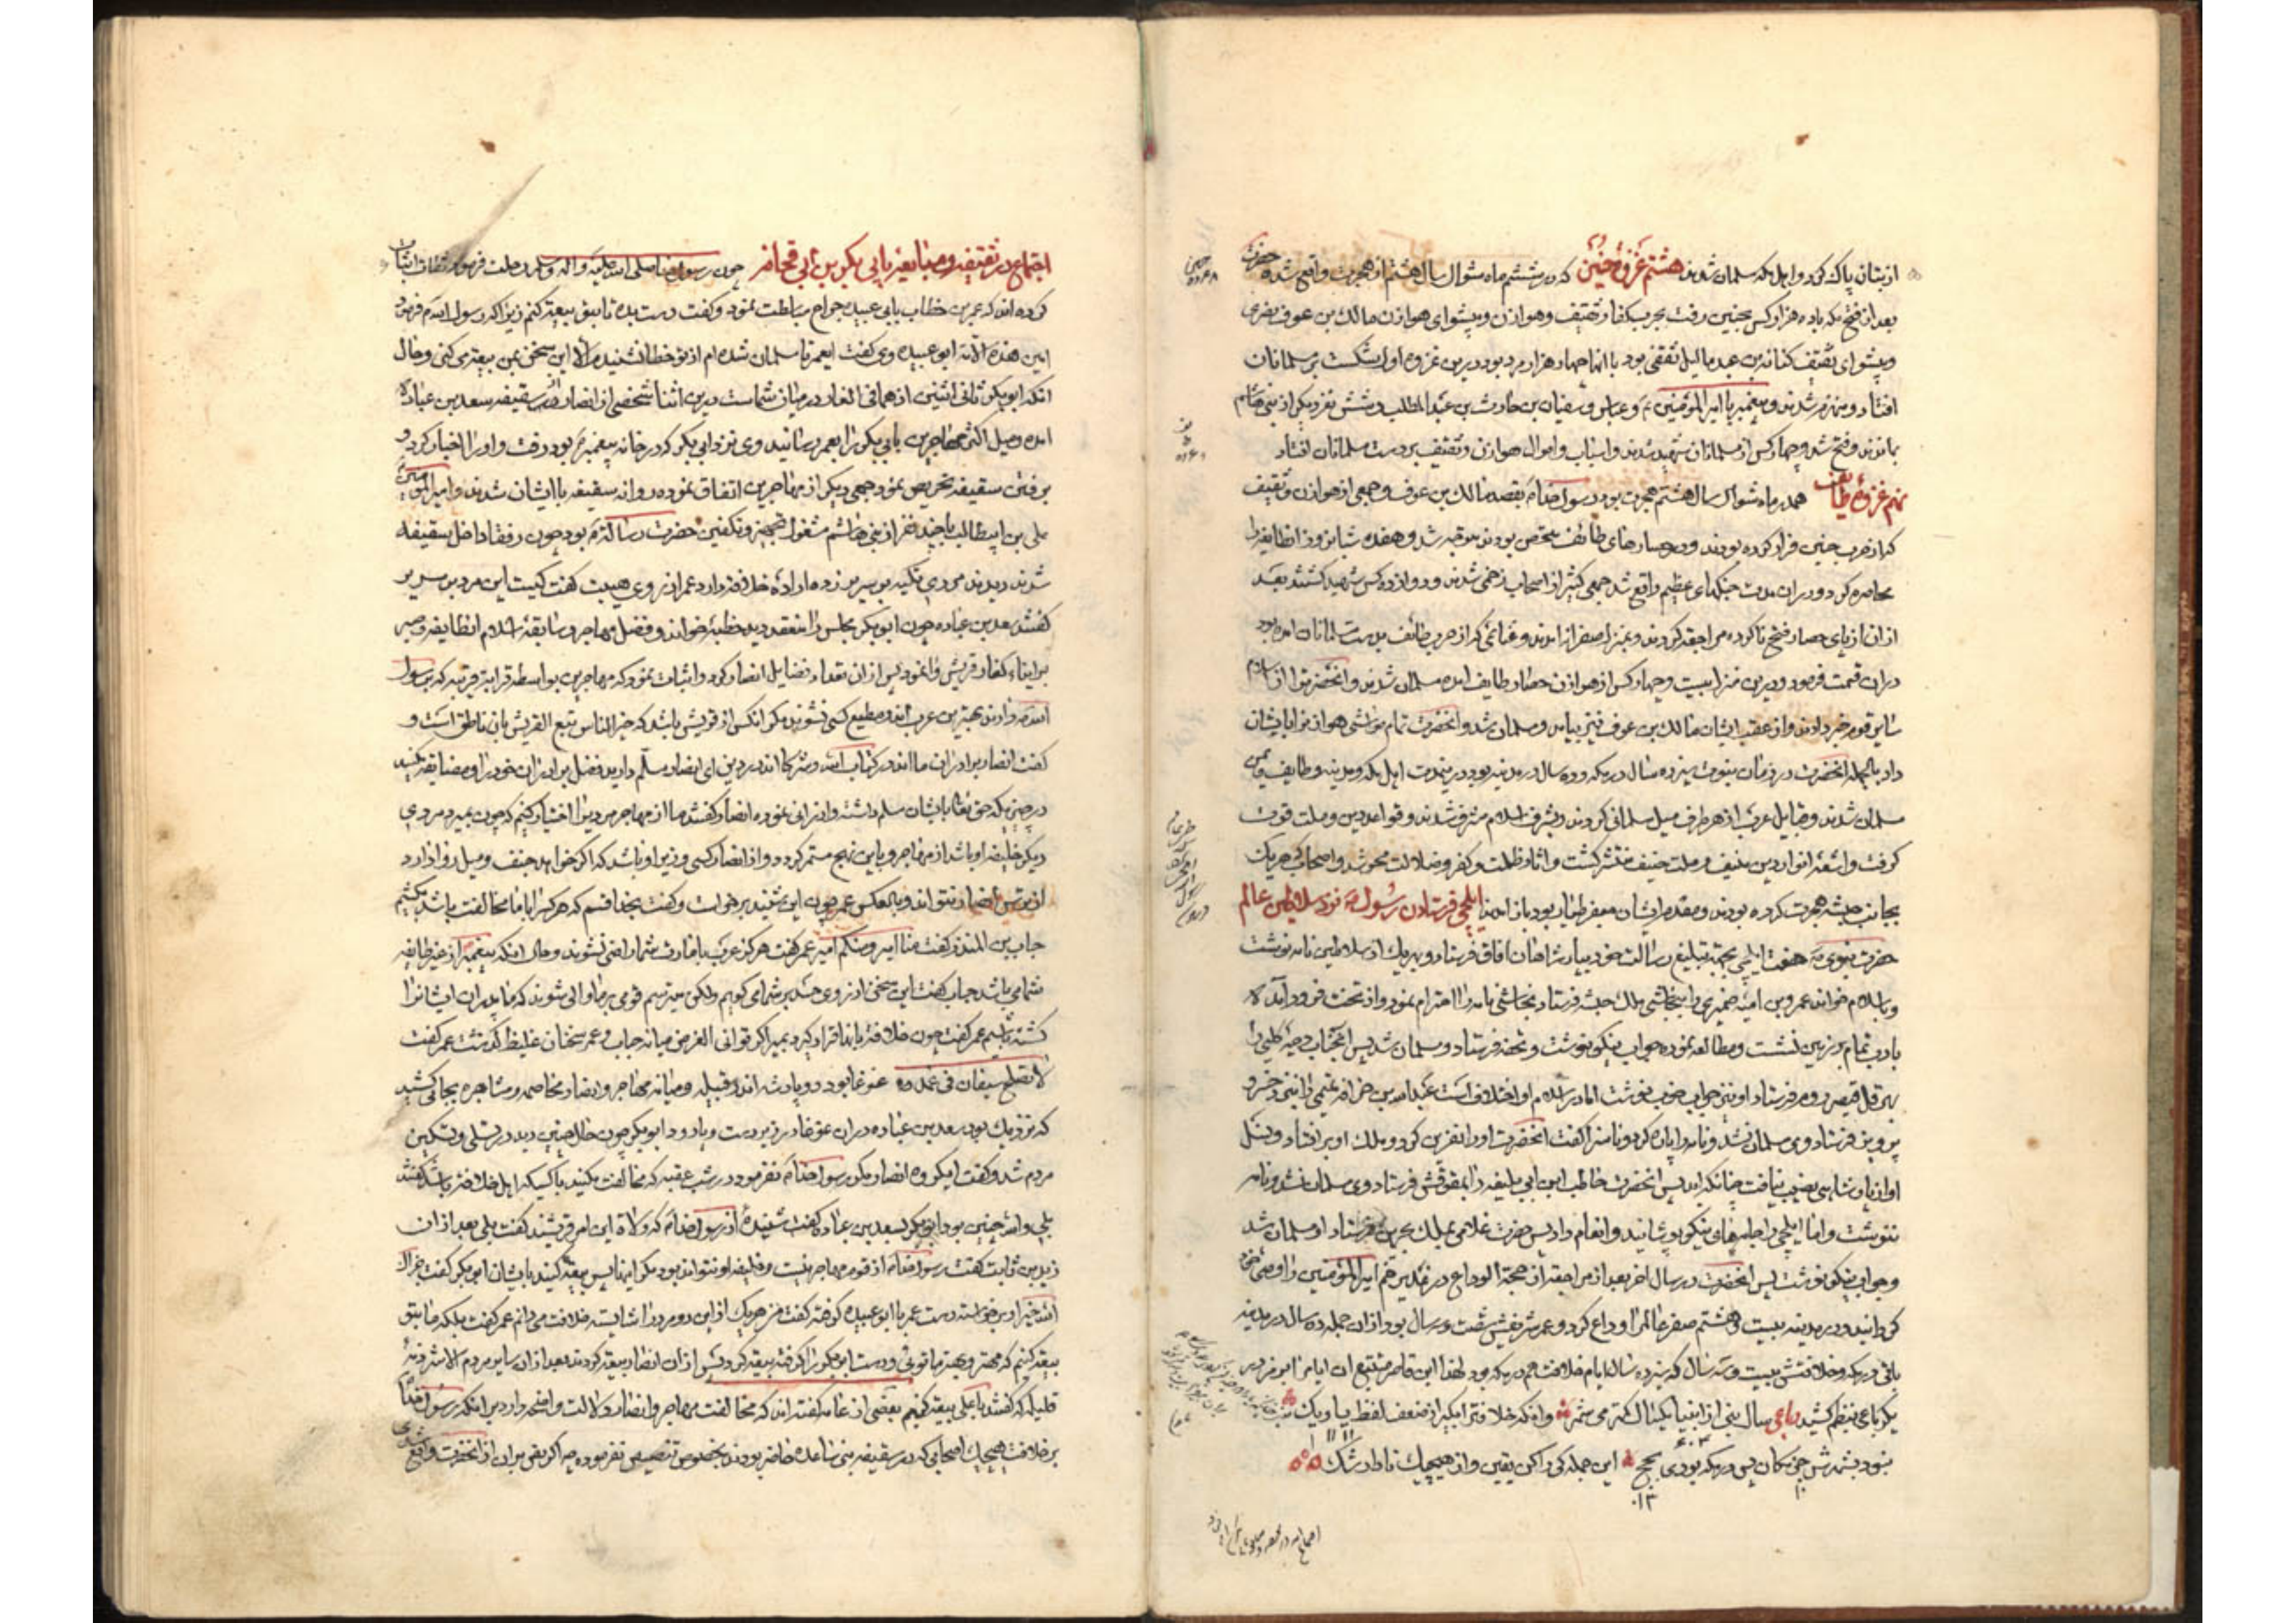 از بتان پاک کرد و اهل مکه مسلمان شدند هشتم غزوهٔ حنین که در ششم ماه شوال سال هشتم از هجرت واقع شد حضرت
بعد از فتح مکه با ده هزار کس بحنین رفت بحرب کفار ثقیف و هوازن و پیشوای هوازن مالک بن عوف نضری
و پیشوای ثقیف کنانة بن عبد یالیل ثقفی بود با آنها چهار هزار مرد بود درین غزوه اول شکست بر مسلمانان
افتاد و منهزم شدند و پیغمبر با امیر المؤمنین و عباس و سفیان بن حارث بن عبد المطلب و شش نفر دیگر از بنی هاشم
بماندند و فتح شد و چهار کس از مسلمانان شهید شدند و اسباب و اموال هوازن و ثقیف بر دست مسلمانان افتاد
نهم غزوهٔ طائف هم در ماه شوال سال هشتم هجرت بود رسول خدا بقصد مالک بن عوف و جمعی از هوازن و ثقیف
که از حرب حنین فرار کرده بودند و در حصارهای طائف متحصن بودند متوجه شد و هفده شبانروز آن طایفه را
محاصره کرد و در آن مدت جنگهای عظیم واقع شد جمعی کثیر از اصحاب زخمی شدند و دوازده کس شهید گشتند بعد
از آن از پای حصار فتح ناکرده مراجعه کردند و بمنزل آمدند و غنائمی که از حرب طائف بدست مسلمانان آمده بود
در آن قسمت فرمود و درین منزل بیست و چهار کس از هوازن حصار طایف آمده مسلمان شدند و آنحضرت را از اسلام
سایر قوم خبر دادند و از عقب ایشان مالک بن عوف نیز بیامد و مسلمان شد و آنحضرت تمام مواشی هوازن را بایشان
داد بالجمله آنحضرت در زمان نبوت سیزده سال در مکه و ده سال در مدینه بود در مدت اهل مکه و مدینه و طایف و یمن
مسلمان شدند و قبایل عرب از هر طرف میل مسلمانی کردند و بشرف اسلام مشرف شدند و قواعد دین و ملت قوت
گرفت و اشعهٔ انوار دین حنیف و ملت حنیف منتشر گشت و آثار ظلمت و کفر و ضلالت محو شد و اصحاب که هر یک
بجانب حبشه هجرت کرده بودند و مقدم ایشان جعفر طیار بود باز آمدند ایلچی فرستادن رسول نزد سلاطین عالم
حضرت نبوی هفت ایلچی بجهة تبلیغ رسالت خود بپادشاهان آفاق فرستاد و بهر یک از سلاطین نامه نوشت
و باسلام خواند عمرو بن امیه ضمیری را بنجاشی ملک حبشه فرستاد نجاشی نامه را احترام نمود و از تخت فرود آمد
بادب تمام بر زمین نشست و مطالعه نموده جواب نیکو نوشت و تحفه فرستاد و مسلمان شد پس آنجناب دحیه کلبی را
بهرقل قیصر روم فرستاد او نیز جواب خوب نوشت اما در اسلام او اختلاف است عبد الله بن حذافه را بنزد خسرو
پرویز فرستاد وی مسلمان نشد و نامه را پاره کرد و ناسزا گفت آنحضرت او را نفرین کرد و ملک او برافتاد و نسل
او از پادشاهی نصیب نیافت چنانکه آمد پس آنحضرت حاطب ابن ابی بلتعه را بمقوقس فرستاد وی مسلمان نشد و نامه
ننوشت و اما ایلچی را جامهای نیکو پوشانید و انعام داد پس حضرت علا را بملک بحرین فرستاد او مسلمان شد
و جواب نیکو نوشت پس آنحضرت در سال آخر بعد از مراجعه از حجة الوداع در غدیر خم امیر المؤمنین را وصی خود
گردانید و در مدینه بیست و هشتم صفر عالم را وداع کرد و عمر شریفش شصت و سه سال بود از آن جمله ده سال در مدینه
باقی در مکه و خلافتش بیست و سه سال که سیزده سال ایام خلافت هم در مکه بود لهذا این قاصر متتبع آن ایام را
یک رباعی بنظم کشید رباعی سال نبی از انبیا یکسال کمتر می شمر
نبود بشمردش پس در مکه بودی این جمله کی را کن یقین و از هیچیک ناطار شک
اجتماع در ثقیفه و مبایعه با ابی بکر بن ابی قحافه چون رسول خدا صلی الله علیه و آله و سلم رحلت فرمود ثقات اثبات
کرده اند که عمر بن خطاب بابی عبیده جراح مباسطت نمود و گفت دست بده تا بتو بیعة کنم زیرا که رسول الله فرمود
امین هذه الامة ابو عبیده وی گفت ای عمر تا مسلمان شده ام از تو خطا نشنیدم الا این سخن بمن بیعة می کنی و حال
آنکه ابو بکر ثانی اثنین اذ هما فی الغار در میان شماست درین اثنا شخصی از انصار از سقیفه سعد بن عباده
آمده و میل اکثر مهاجرین بابی بکر را بعمر رسانید وی نزد ابی بکر که در خانه پیغمبر بود رفت و او را اخبار کرد و
برفتن سقیفه تحریص نمود جمعی دیگر از مهاجرین اتفاق نموده روانه سقیفه با ایشان شدند و امیر المؤمنین
علی بن ابیطالب با چند نفر از بنی هاشم مشغول تجهیز و تکفین حضرت رسالة بود چون رفقا داخل سقیفه
شدند دیدند مردی تکیه بر سریر زده ارادهٔ خلافة دارد عمر از روی هیبت گفت کیست این مرد بر سریر
گفتند سعد بن عباده چون ابو بکر مجلس را منعقد دید خطبه خواند و فضل مهاجر و سابقهٔ اسلام آن طایفه و صبر
بر ایذاء کفار قریش وا نمود پس از آن تعداد فضایل انصار کرد و اثبات نمود که مهاجرین بواسطه قرابة قریبه که برسول
الله دارند بهترین عرب اند و مطیع کسی نشوند مگر آنکس از قریش باشد که خبر الناس تبع القریش بآن ناطق است و
گفت انصار برادران ما اند در کتاب الله و شرکا اند در دین ای انصار مسلم دارید فضل برادران خود را و مضایقه نکنید
در چیزی که حق تعالی بایشان مسلم داشته و ارزانی نموده انصار گفتند ما از مهاجر مردی را اختیار کنیم که چون بمیرد مردی
دیگر خلیفه او باشد از مهاجر و باین نهج مستمر گردد و از انصار کسی وزیر او باشد که اگر خواهد حنف و میل روا دارد
از ترس انصار نتواند و بالعکس عمر چون این شنید برخواست و گفت بخدا قسم که هر کس را با ما مخالفت باشد بکشیم
حباب بن المنذر گفت منا امیر و منکم امیر عمر گفت هرگز عرب بامارت شما راضی نشوند و حال آنکه پیغمبر از غیر طایفه
شما می باشد حباب گفت این سخن از روی حسد بر شما می گویم ولکن میترسم قومی بر ما والی شوند که ما پدران ایشانرا
کشته باشیم عمر گفت چون خلافة باینها قرار گیرد بمیر اگر توانی الغرض میانه حباب و عمر سخنان غلیظ گذشت عمر گفت
لا یصلح سیفان فی غمد و غوغا بود دو پادشه اندر قبیله و میانه مهاجر و انصار مخاصمه و مشاجره بجائی کشید
که نزدیک بود سعد بن عباده در آن غوغا در زیر دست و پا رود ابو بکر چون حال چنین دید در تسلی و تسکین
مردم شد و گفت ای گروه انصار مگر رسول خدا نفرمود در شب عقبه که مخالفت مکنید با کسیکه اهل خلافة باشد گفتند
بلی والله چنین بود ابو بکر بسعد بن عباده گفت شنیدهٔ از رسول خدا که ولاة این امر قریشند گفت بلی بعد از آن
زید بن ثابت گفت رسول خدا از قوم مهاجر نیست و خلیفه او نتواند بود مگر اینها پس بیعة کنید بایشان ابی بکر گفت جزاک
الله خیرا و برخواسته دست عمر با ابو عبیده گرفته گفت من هر یک از این دو مرد را شایسته خلافت می دانم عمر گفت بلکه ما بتو
بیعة کنیم که مهتر و بهتر ما توئی و دست ابو بکر را گرفته بیعة کرد و پس از آن انصار بیعة کردند بعد از آن سایر مردم الا شرذمهٔ
قلیله که گفتند با علی بیعة کنیم بعضی از عامه گفته اند که مخالفت مهاجر و انصار دلالت واضحه دارد بر آنکه رسول خدا
بر خلافت هیچیک اصحابی که در سقیفه بنی ساعده حاضر بودند بخصوص تنصیص نفرموده چه اگر نصی بر آن از آنحضرت واقع شدی